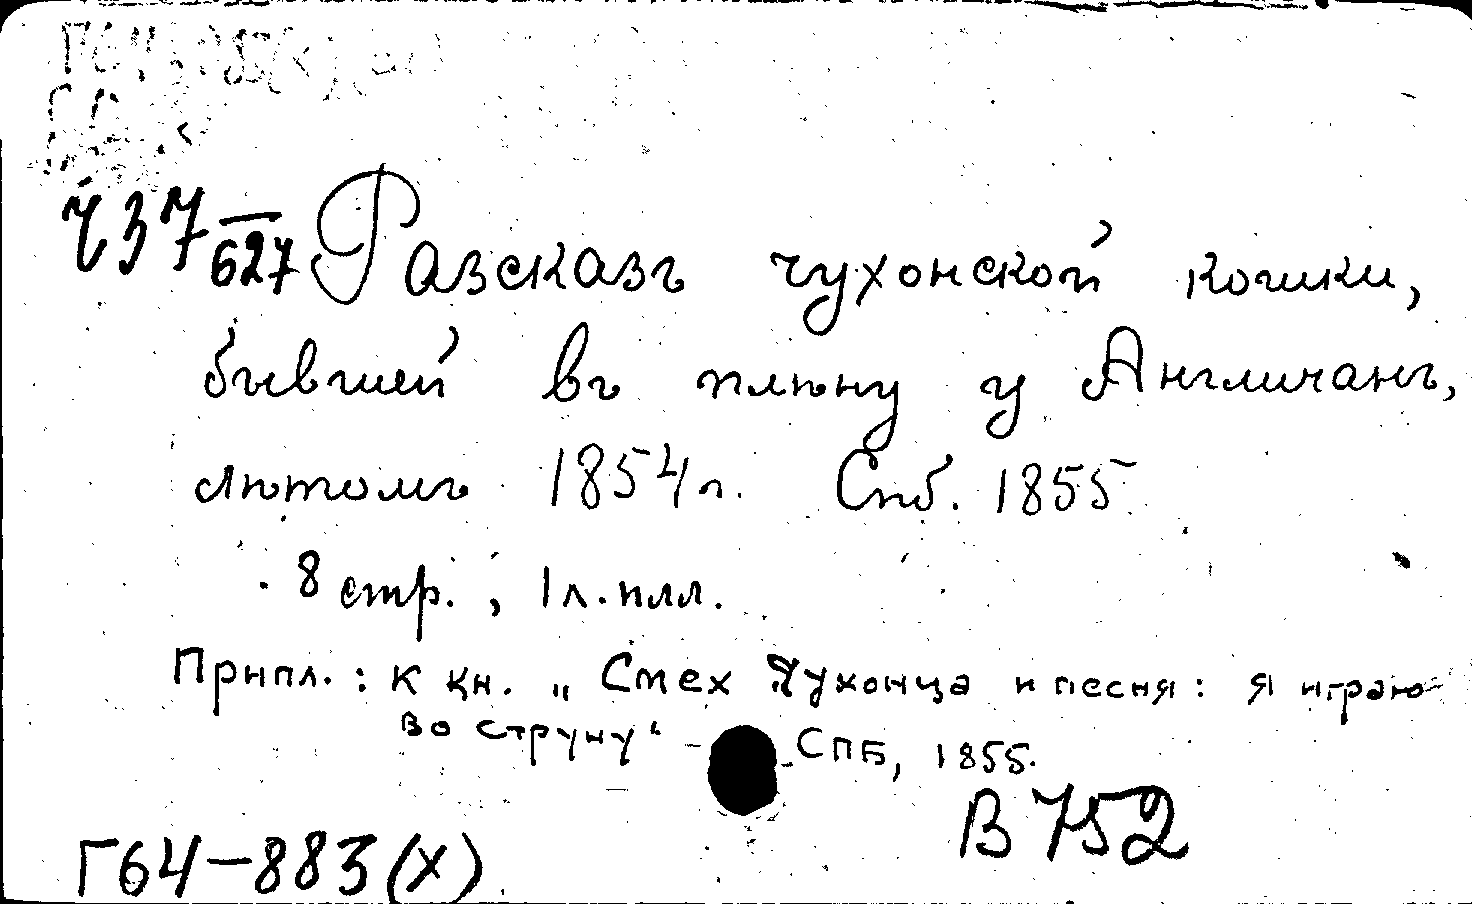 Ч 37/627 Разсказъ чухонской кошки,
бывшей въ плѣну у Англичанъ,
лѣтомъ 1854 г. Спб. 1855
8 стр., 1 л. илл.
Припл.: к кн. „Смех Чухонца и песня: Я играю
во струну“ - СПБ, 1855.
В 752
Г64-883(х)